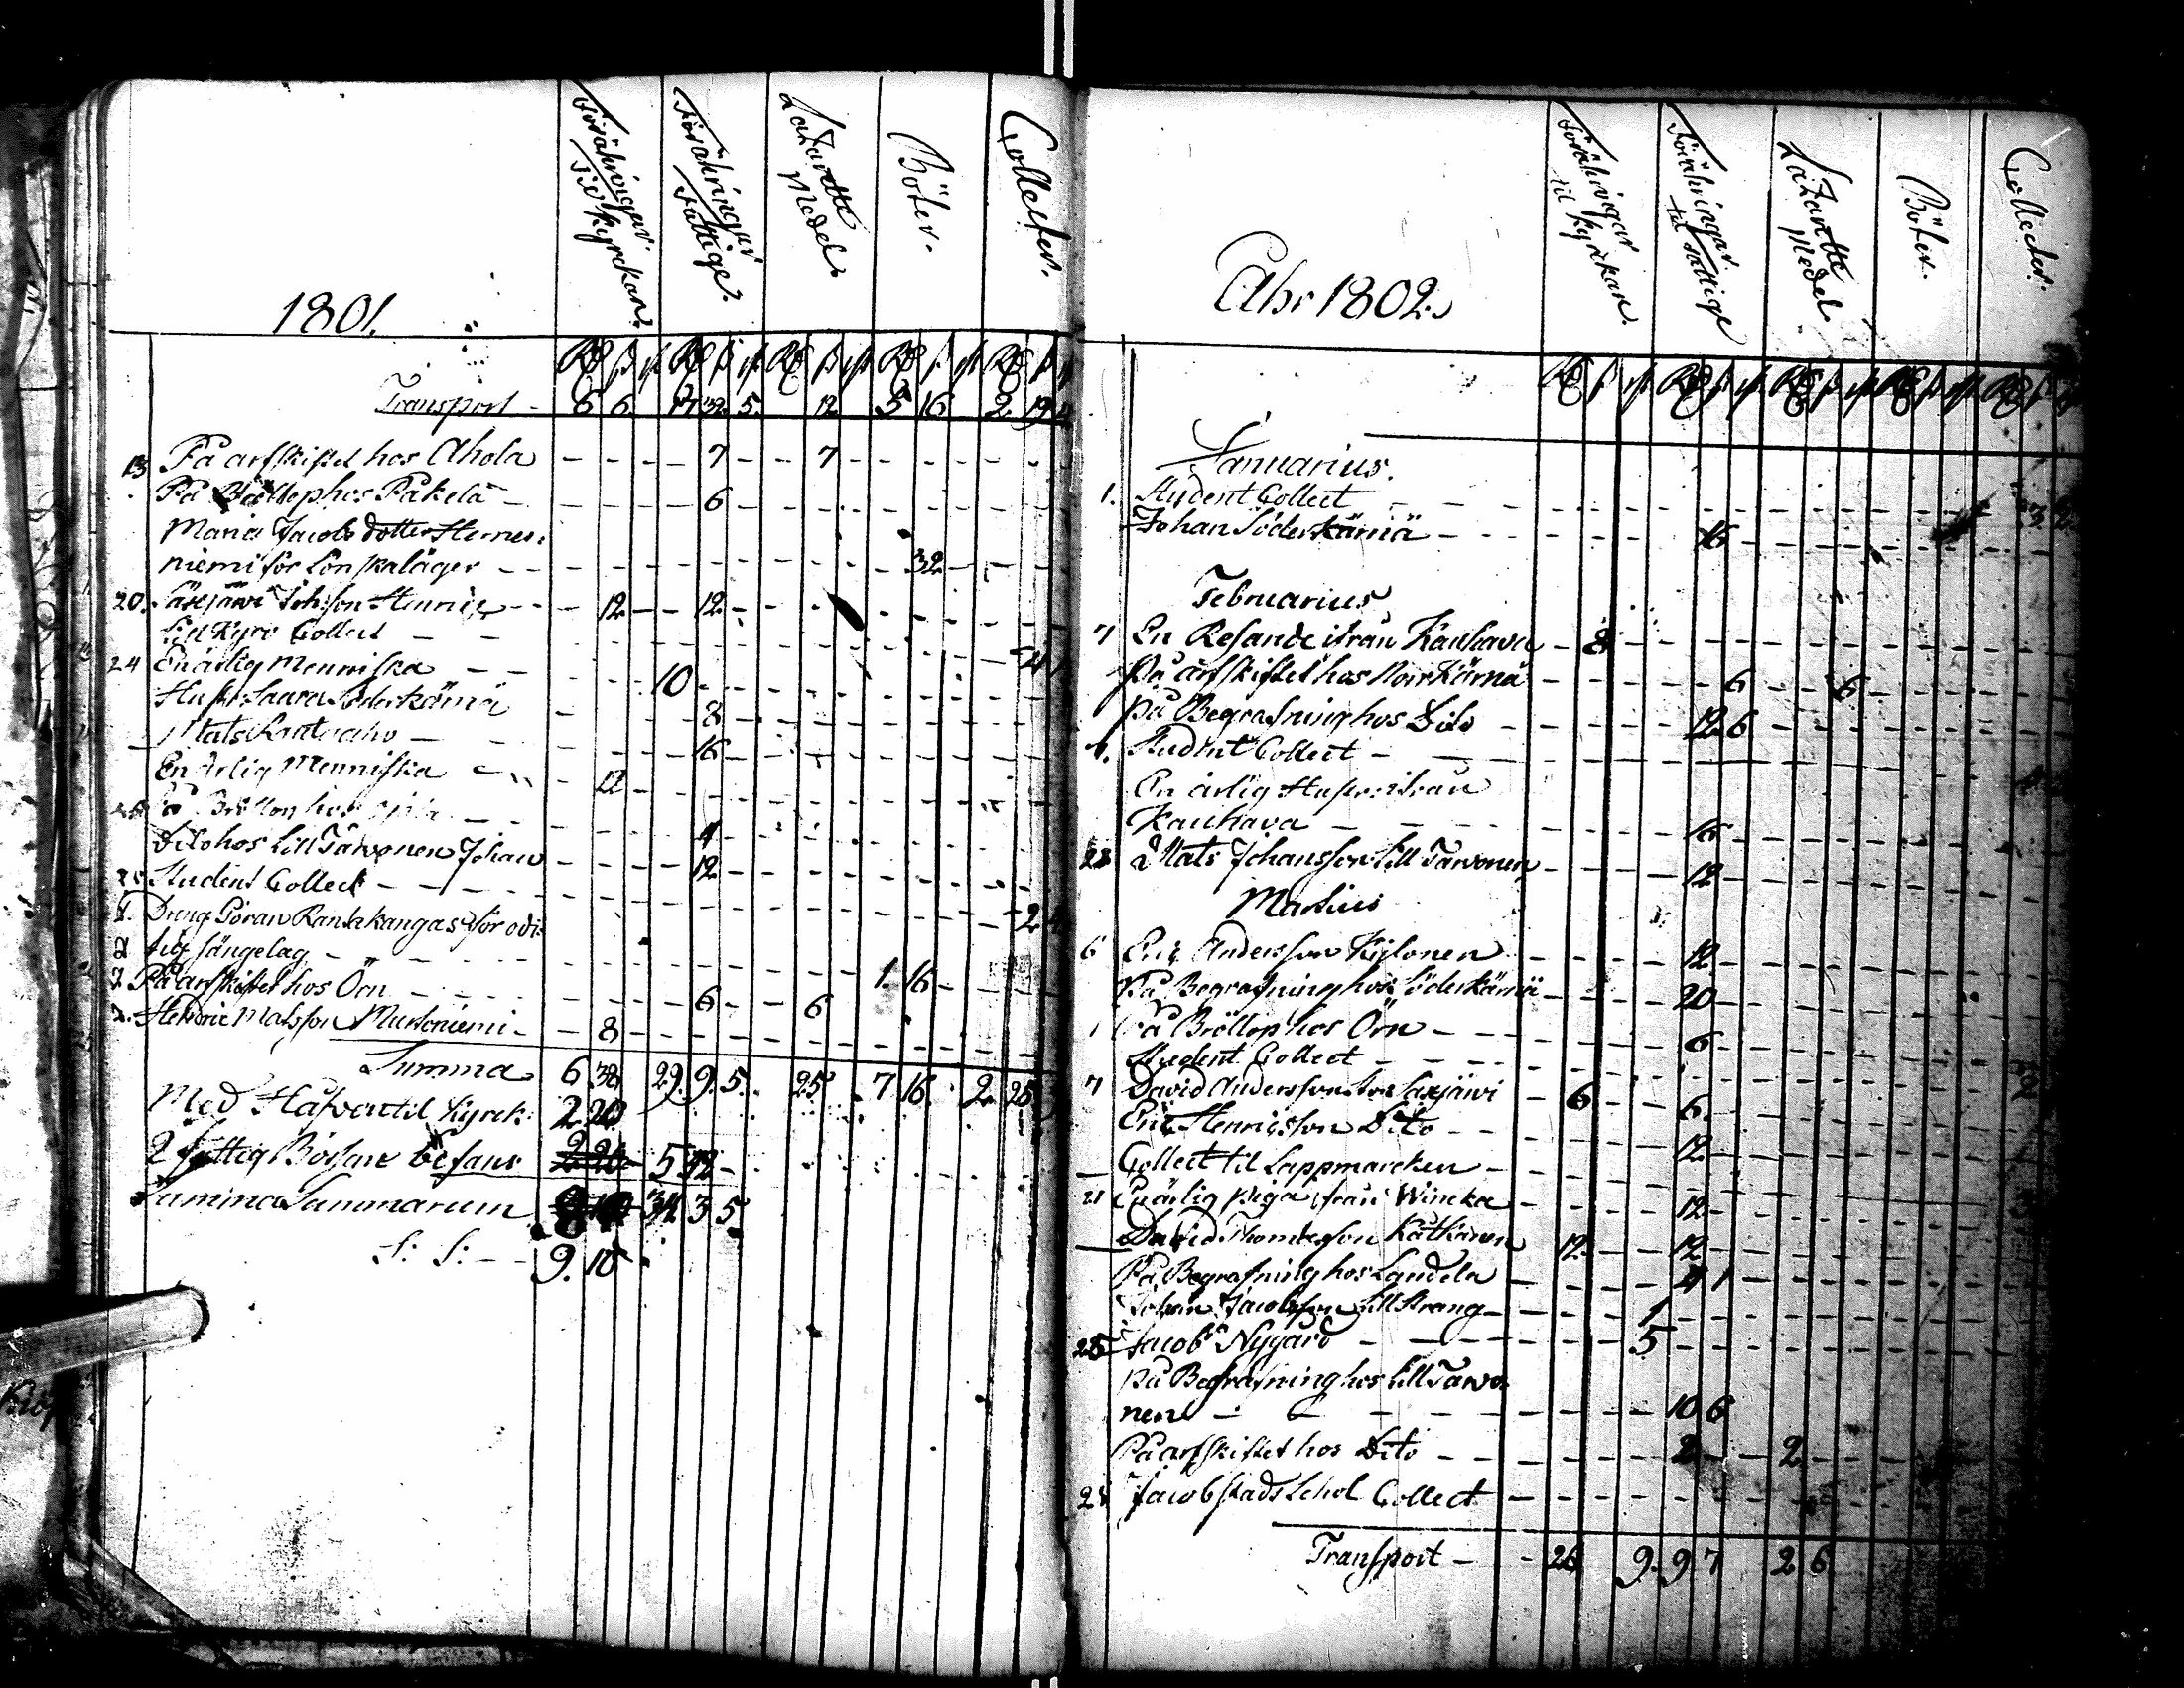 Förähringar til Kyrckan.
Föräringar Fattige.
Lazarette Medel.
Böter.
Collecter.
1801.
Rd ß rst Rd ß rst Rd ß rst Rd ß rst Rd ß
Transport - 6 6 32. 5. 12 5 16 2 19
13 På arfskiftet hos Ahola - - - - 7 - - 7 - - -
På Bröllop hos Pakela - - - - 6 - - -
Maria Jacobsdotter Hernes=
niemi för Lönskaläger - - - 32 - - -
20. Saxjärvi Johsson Henric - - - 12 - - 12 - - -
Lill Kyro Collect - -
24 En ärlig Menniska - - - 10 - - -
Hust: Saara Söderkärnä - - 8 - - -
Mats - - - 16 - - -
En ärlig Menniska - - - 12 - - -
På Bröllop hos - - - 4 - - -
Dito hos Lill Tarvonen Johan - - - 12 - - -
Student Collect - - - 2 4
Dreng Göran Rantakangas för odi=
lig sängelag - - - 1. 16 - - -
2. På arfskiftet hos Örn - - - 6 - - 6 - - -
2. Hendric Matsson Mursoniemi - - 8 - - -
Summa 6 38 29. 9. 5. 25 7 16. 2. 25
Med Håfven til Kyrck: 2 20
2 fattig Börsan befans 2 20 5 42 -
Summa Summarum 34 3 5
S: S: - - 9. 10
Föräringar til Kyrckan.
Föräringar til Fattige
Lazarette Medel.
Böter.
Collecter.
Åhr 1802.
Rd ß rst Rd ß rst Rd ß rst Rd ß rst Rd ß
Januarius.
1. Student Collect - - -
Johan Söderkärnä - - - 16 - - -
Februarius
7 En Resande ifrån Kauhava - 8 - - -
På arfskiftet hos Norr Kärnä - - - 6 - - 6 - - -
På Begrafning hos Dito - - - 12 6 - - -
Student Collect - - -
En ärlig Hustr: ifrån
Kauhava - - - 16 - - -
28 Mats Johansson Lill Tarvonen - - - 12 - - -
Martius
6 Eric Andersson Kylonen - - - 12 - - -
På Begrafning hos Söderkärnä - - - 20 - - -
På Bröllop hos Örn - - - 6 - - -
Student Collect - - - 2
7 David Andersson hos Saxjärvi - 6 - - 6. - - -
Eric Henricsson Dito - - - 12 - - -
Collect til Lappmarcken - - -
21 En ärlig Piga ifrån Wincka - - - 12 - - -
David Thomasson Kattkainen 12 - - 12 - - -
På Begrafning hos Landela - - - 21 - - -
Johan Jacobsson Lill Strang - - - 1 - - -
25 Jacob Nygård - - - 5 - - -
På Begrafning hos Lill Tarvo=
nen - - - 10 6
På arfskiftet hos Dito - - - 2 - - 2 - - -
28 Jacobstads Schol Collect - - -
Transport - - 26 9. 9 7 2 6